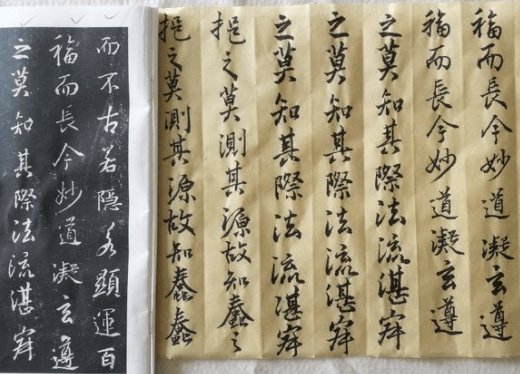 福而長今妙道凝玄遵
福而長今妙道凝玄遵
之莫知其際法流湛寂
之莫知其際法流湛寂
之莫知其際法流湛寂
挹之莫測其源故知蠢々
挹之莫測其源故知蠢蠢
而不古若隱若顯運百
福而長今妙道凝玄遵
之莫知其際法流湛寂